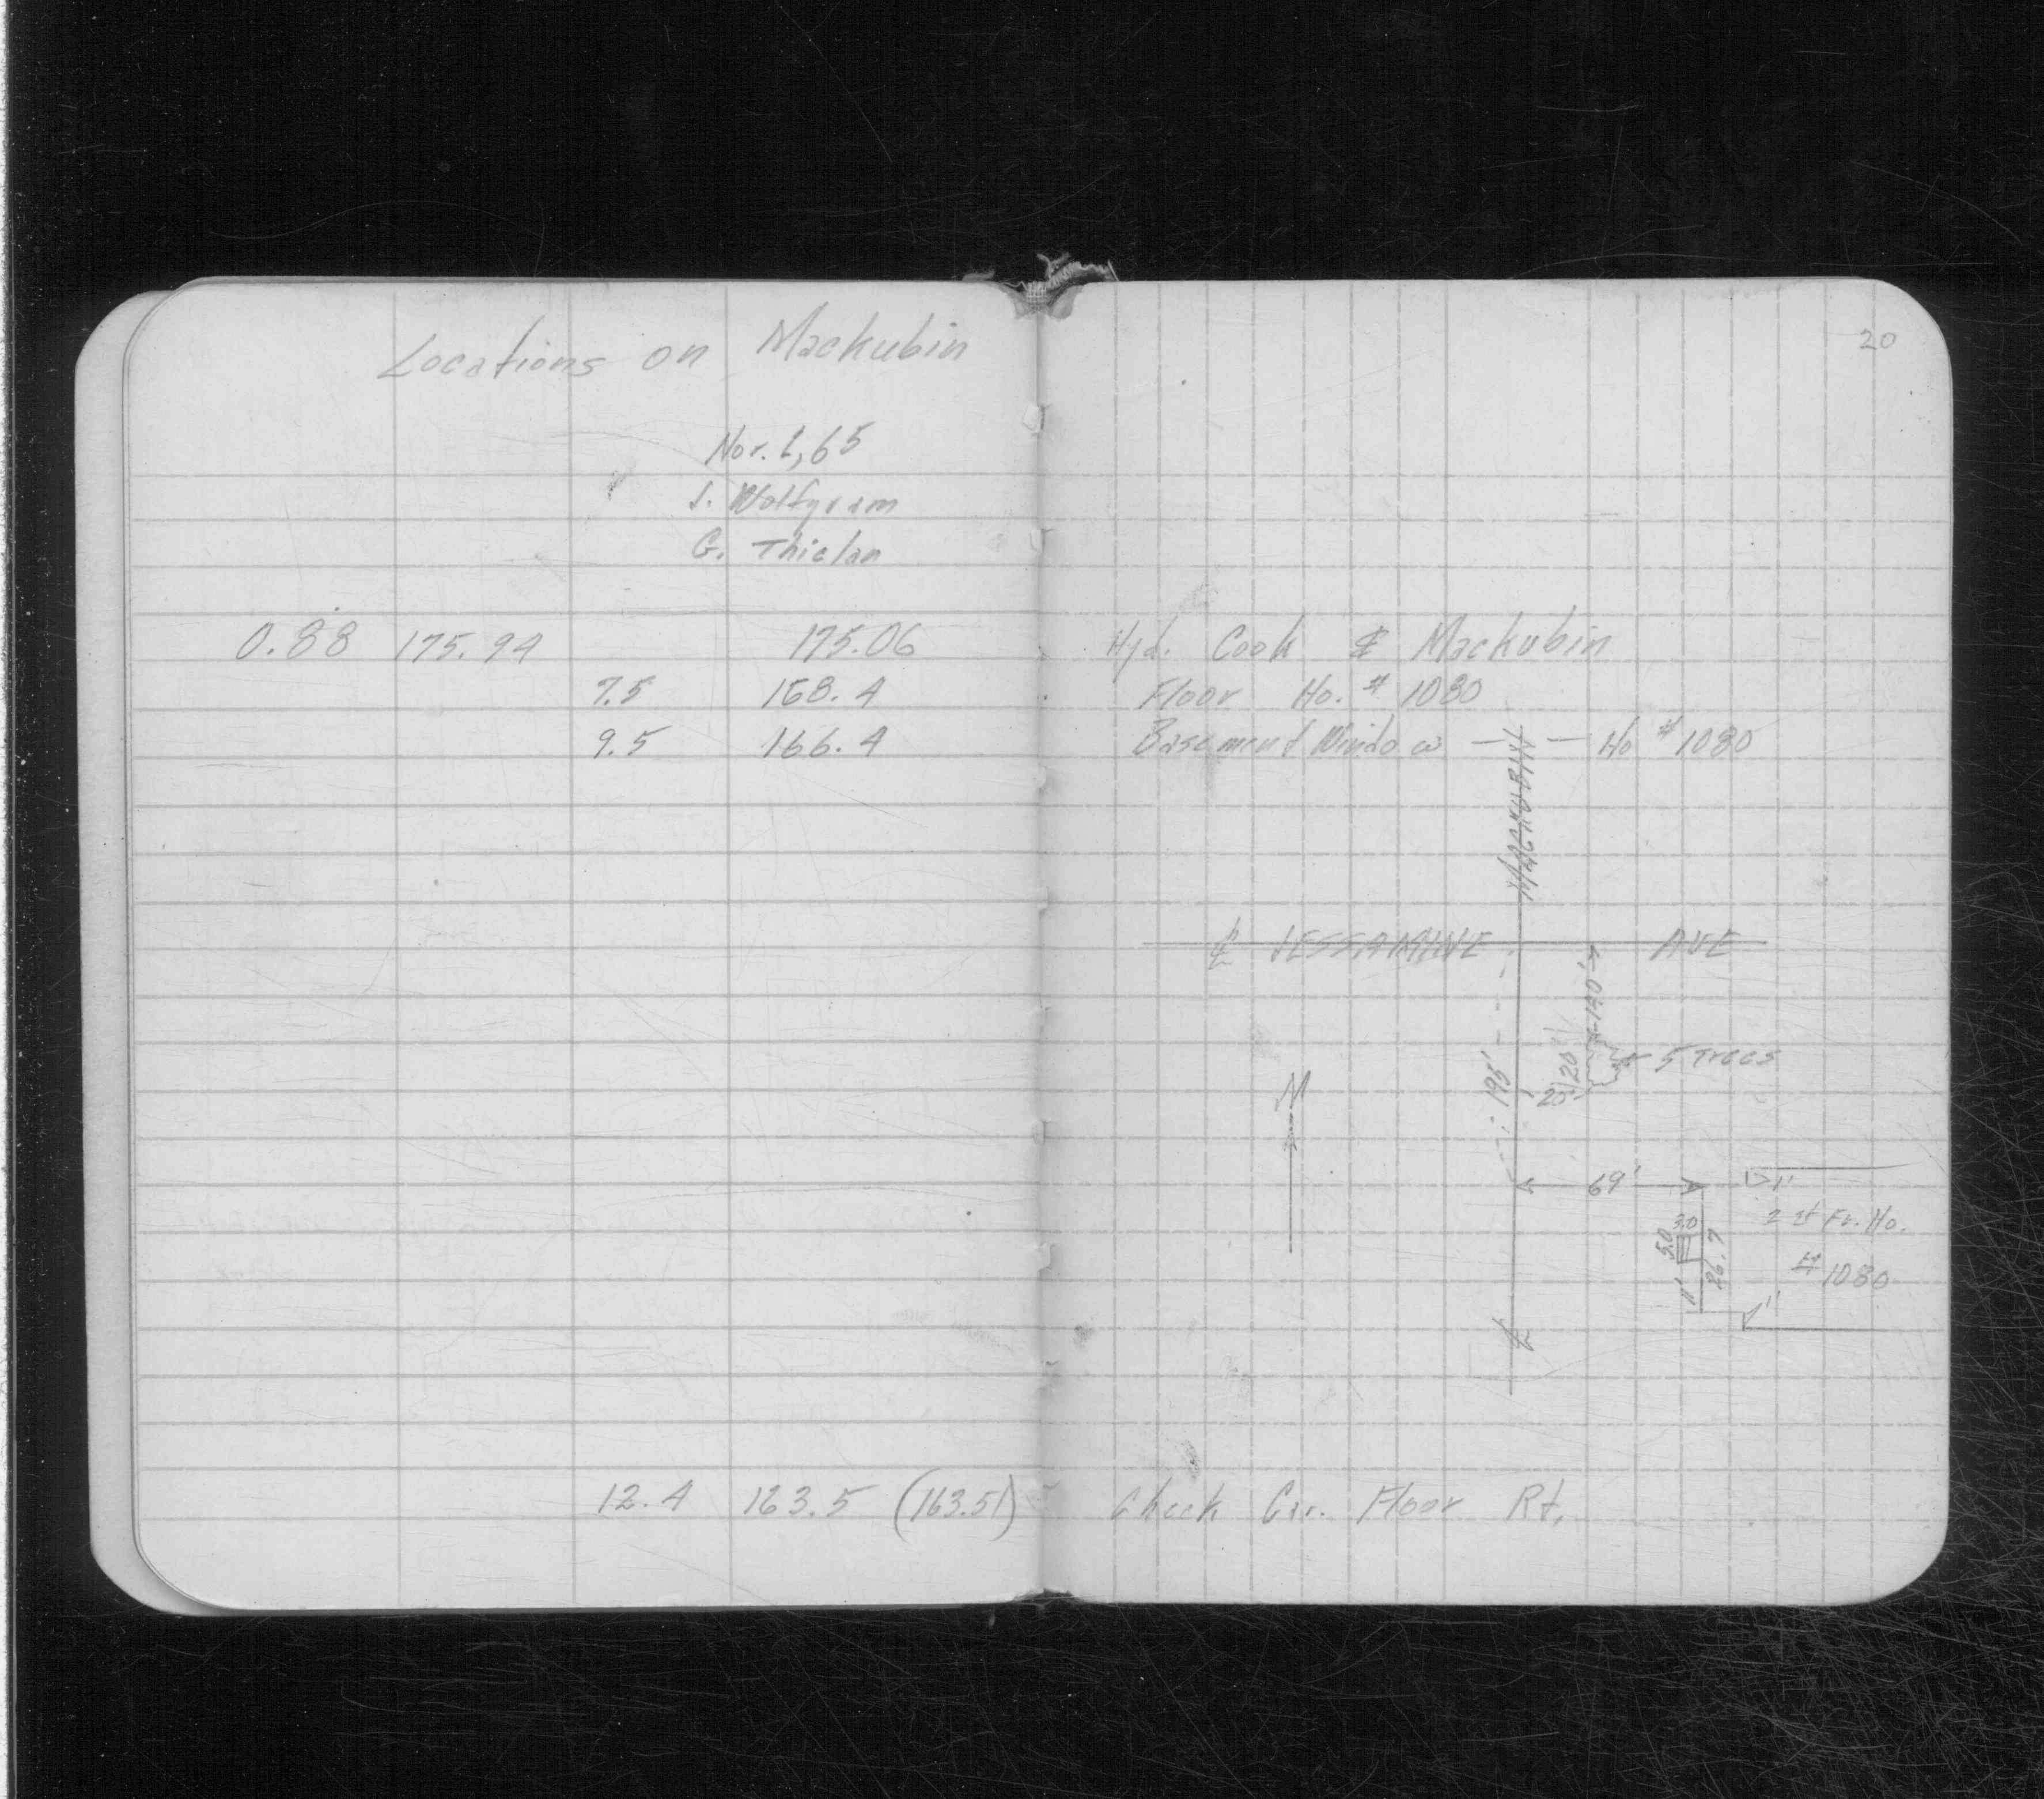 Locations on Mackubin
20
Nov. 1, 65
J. Wolfgram
G. Thielan
0.88 175.94 175.06 Hyd. Cook & Mackubin
7.5 168.4 Floor Ho. # 1080
9.5 166.4 Basement Window — — Ho # 1080
MACKUBIN
℄ JESSAMINE AVE
140'
195'
20'
25'
5 Trees
N
69'
1'
3.0
5.0
26.7
11'
2 st Fr. Ho.
# 1080
1'
℄
12.4 163.5 (163.51) Check Gar. Floor Rt.